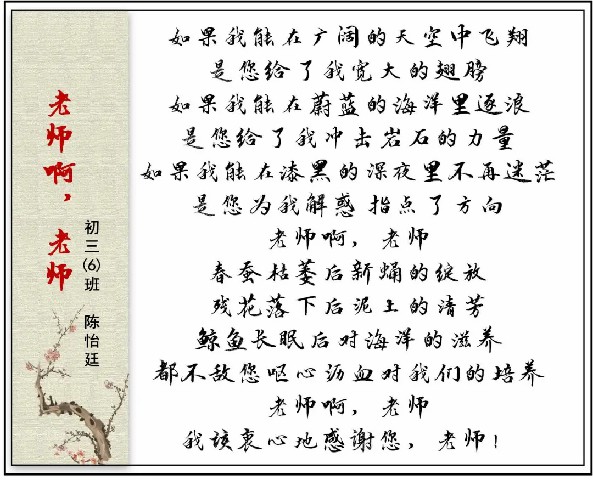 老师啊，老师
初三(6)班 陈怡廷
如果我能在广阔的天空中飞翔
是您给了我宽大的翅膀
如果我能在蔚蓝的海洋里逐浪
是您给了我冲击岩石的力量
如果我能在漆黑的深夜里不再迷茫
是您为我解惑 指点了方向
老师啊，老师
春蚕枯萎后新蛹的绽放
残花落下后泥土的清芳
鲸鱼长眠后对海洋的滋养
都不敌您呕心沥血对我们的培养
老师啊，老师
我该衷心地感谢您，老师！